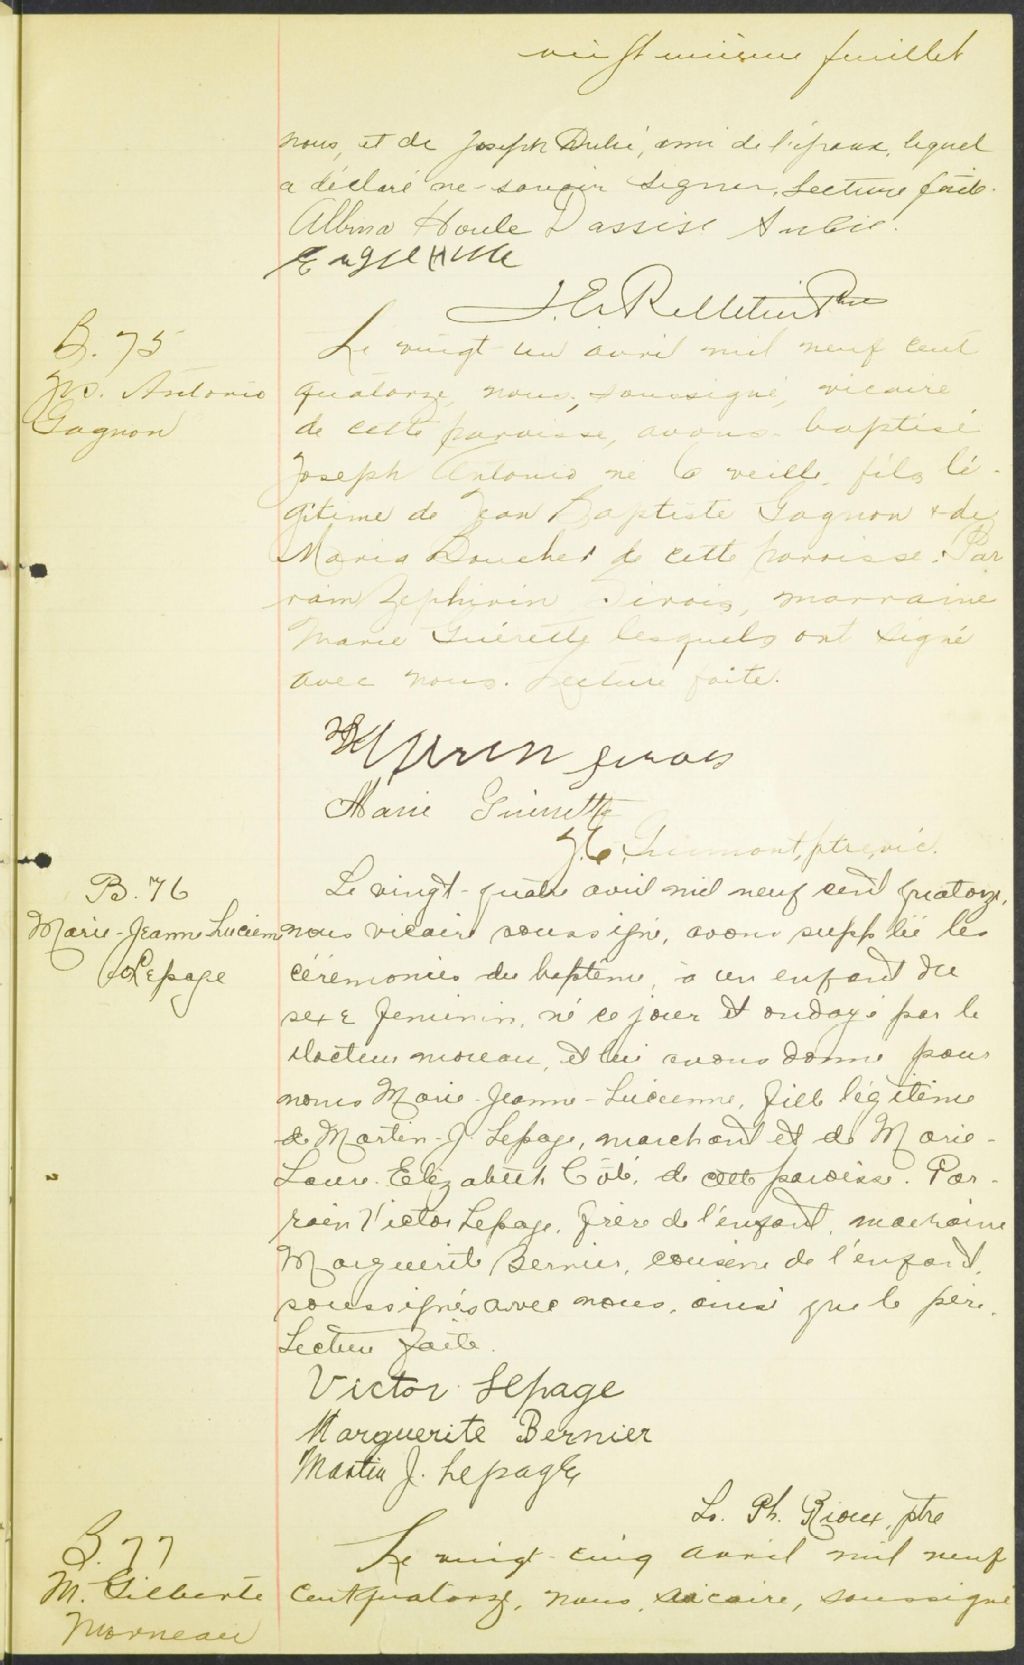 vingt unième feuillet
nous, et de Joseph Dubé, ami de l'époux, lequel
a déclaré ne savoir signer. Lecture faite.
Albina Houle Dassise Aubie.
J. E. Pelletier Ptre
B. 75
Jos. Antonio
Gagnon
Le vingt un avril mil neuf cent
quatorze, nous, soussigné, vicaire
de cette paroisse, avons baptisé
Joseph Antonio né la veille, fils lé-
gitime de Jean Baptiste Gagnon & de
Maria Boucher de cette paroisse. Par
rain Zephirin Sirois, marraine
Marie Guérette lesquels ont signé
avec nous. Lecture faite.
sirois
Marie Guerette
ptre, vic.
B. 76
Marie-Jeanne Lucienne
Lepage
Le vingt-quatre avril mil neuf cent quatorze,
nous vicaire soussigné, avons suppléé les
cérémonies du baptême, à un enfant du
sexe feminin, né ce jour et ondoyé par le
docteur moreau, et lui avons donné pour
noms Marie-Jeanne-Lucienne, fille légitime
de Martin-J. Lepage, marchand et de Marie-
Laure-Elizabeth Côté, de cette paroisse. Par-
rain Victor Lepage, frère de l'enfant, marraine
Marguerite Bernier, cousine de l'enfant,
soussignés avec nous, ainsi que le père.
Lecture faite.
Victor Lepage
Marguerite Bernier
Martin J. Lepage
Ls. Ph. Rioux, ptre
B. 77
M. Gilberte
Morneau
Le vingt-cinq avril mil neuf
cent quatorze, nous, vicaire, soussigné